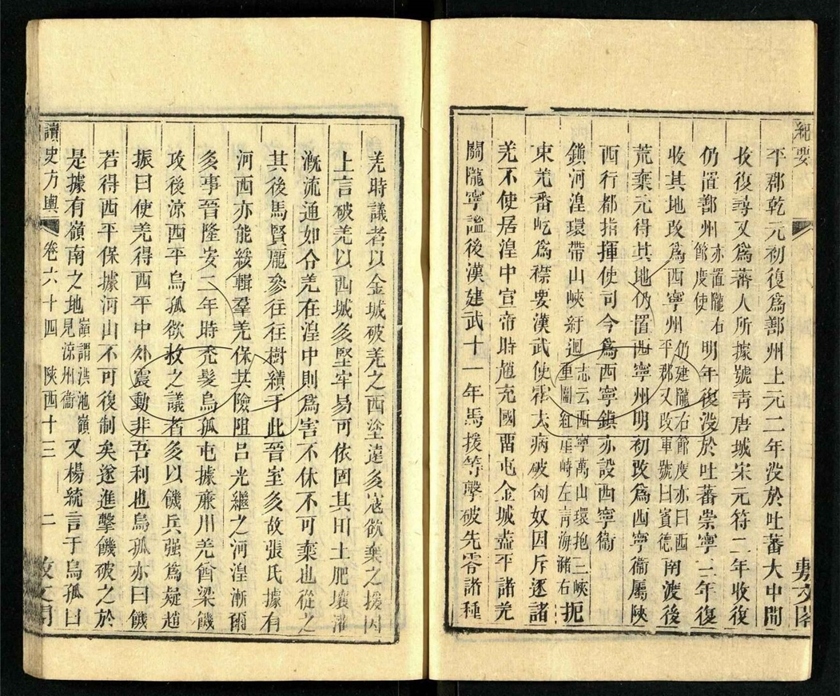 紀要 敷文閣
平郡乾元初復爲鄯州上元二年沒於吐蕃大中間
收復尋又爲蕃人所據號靑唐城宋元符二年收復
仍置鄯州亦置隴右節度使明年復沒於吐蕃崇寧三年復
收其地改爲西寧州仍建隴右節度亦曰西平郡又改軍號曰賓德南渡後
荒棄元得其地仍置西寧州明初改爲西寧衞屬陝
西行都指揮使司今爲西寧鎭亦設西寧衞
鎭河湟環帶山峽紆迴志云西寧萬山環抱三峽重關紅崖峙左靑海瀦右扼
束羌番屹爲襟要漢武使霍去病破匈奴因斥逐諸
羌不使居湟中宣帝時趙充國畱屯金城盡平諸羌
關隴寧謐後漢建武十一年馬援等擊破先零諸種
羌時議者以金城破羌之西塗遠多寇欲棄之援因
上言破羌以西城多堅牢易可依固其田土肥壤灌
漑流通如令羌在湟中則爲害不休不可棄也從之
其後馬賢龐參往往樹績于此晉室多故張氏據有
河西亦能綏輯羣羌保其險阻呂光繼之河湟漸爾
多事晉隆安二年時禿髮烏孤屯據廉川羌酋梁饑
攻後涼西平烏孤欲救之議者多以饑兵强爲疑趙
振曰使羌得西平中外震動非吾利也烏孤亦曰饑
若得西平保據河山不可復制矣遂進擊饑破之於
是據有嶺南之地嶺謂洪池嶺見涼州衞又楊統言于烏孤曰
讀史方輿 卷六十四 陝西十三 二 敷文閣